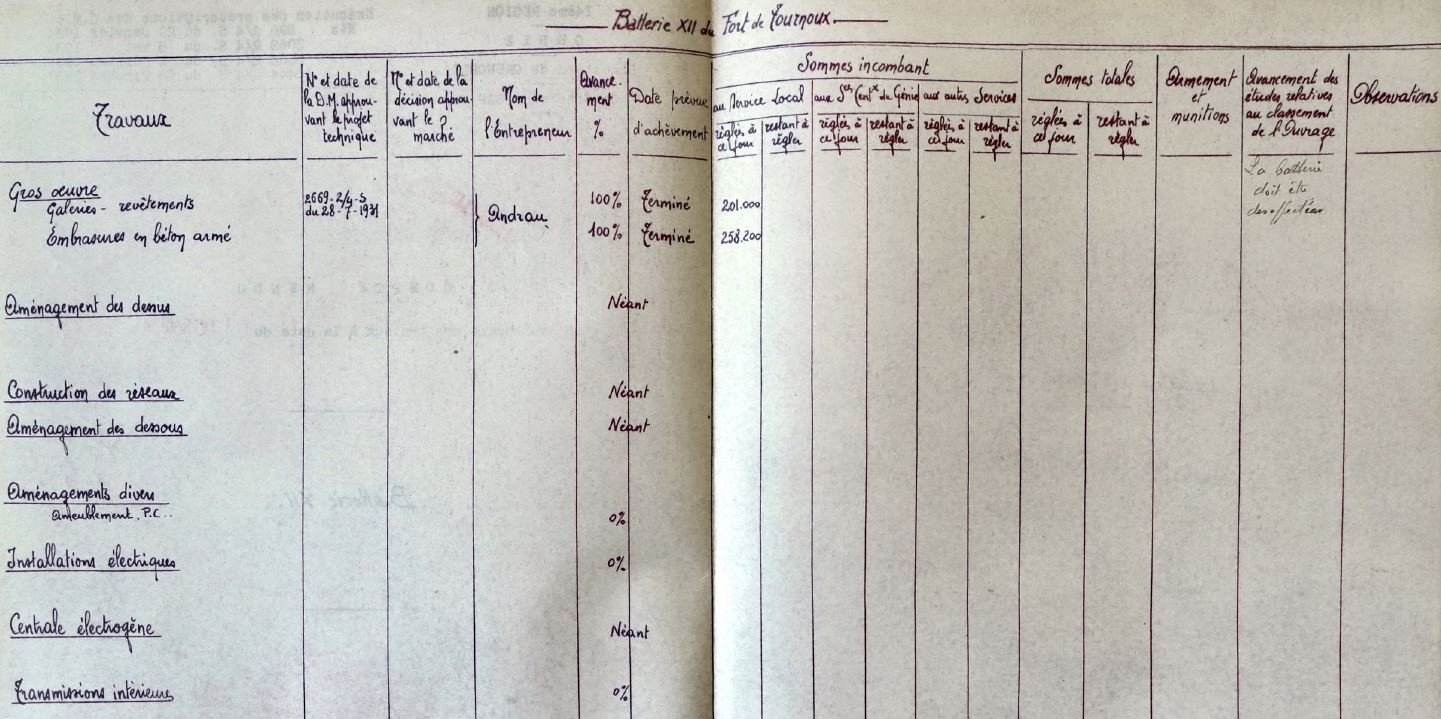 Batterie XII du Fort de Tournoux.
Travaux
N° et date de
la D.M. approu-
vant le projet
technique
N° et date de la
décision approu-
vant le
marché
Nom de
l'Entrepreneur
Avance-
ment
%
Date prévue
d'achèvement
Sommes incombant
au Service Local
aux Sces Centx du Génie
aux autres Services
réglés à
ce jour
restant à
régler
réglés à
ce jour
restant à
régler
réglés à
ce jour
restant à
régler
Sommes totales
réglés à
ce jour
restant à
régler
Armement
et
munitions
Avancement des
études relatives
au classement
de l'Ouvrage
Observations
Gros oeuvre
Galeries - revêtements
2669-2/4-S
du 28-7-1931
Andrau
100% Terminé 201.000
Embrasures en béton armé
100% Terminé 258.200
La batterie
doit être
Aménagement des dessus Néant
Construction des réseaux Néant
Aménagement des dessous Néant
Aménagements divers
Ameublement, P.C... 0%
Installations électriques 0%
Centrale électrogène Néant
Transmissions intérieures 0%